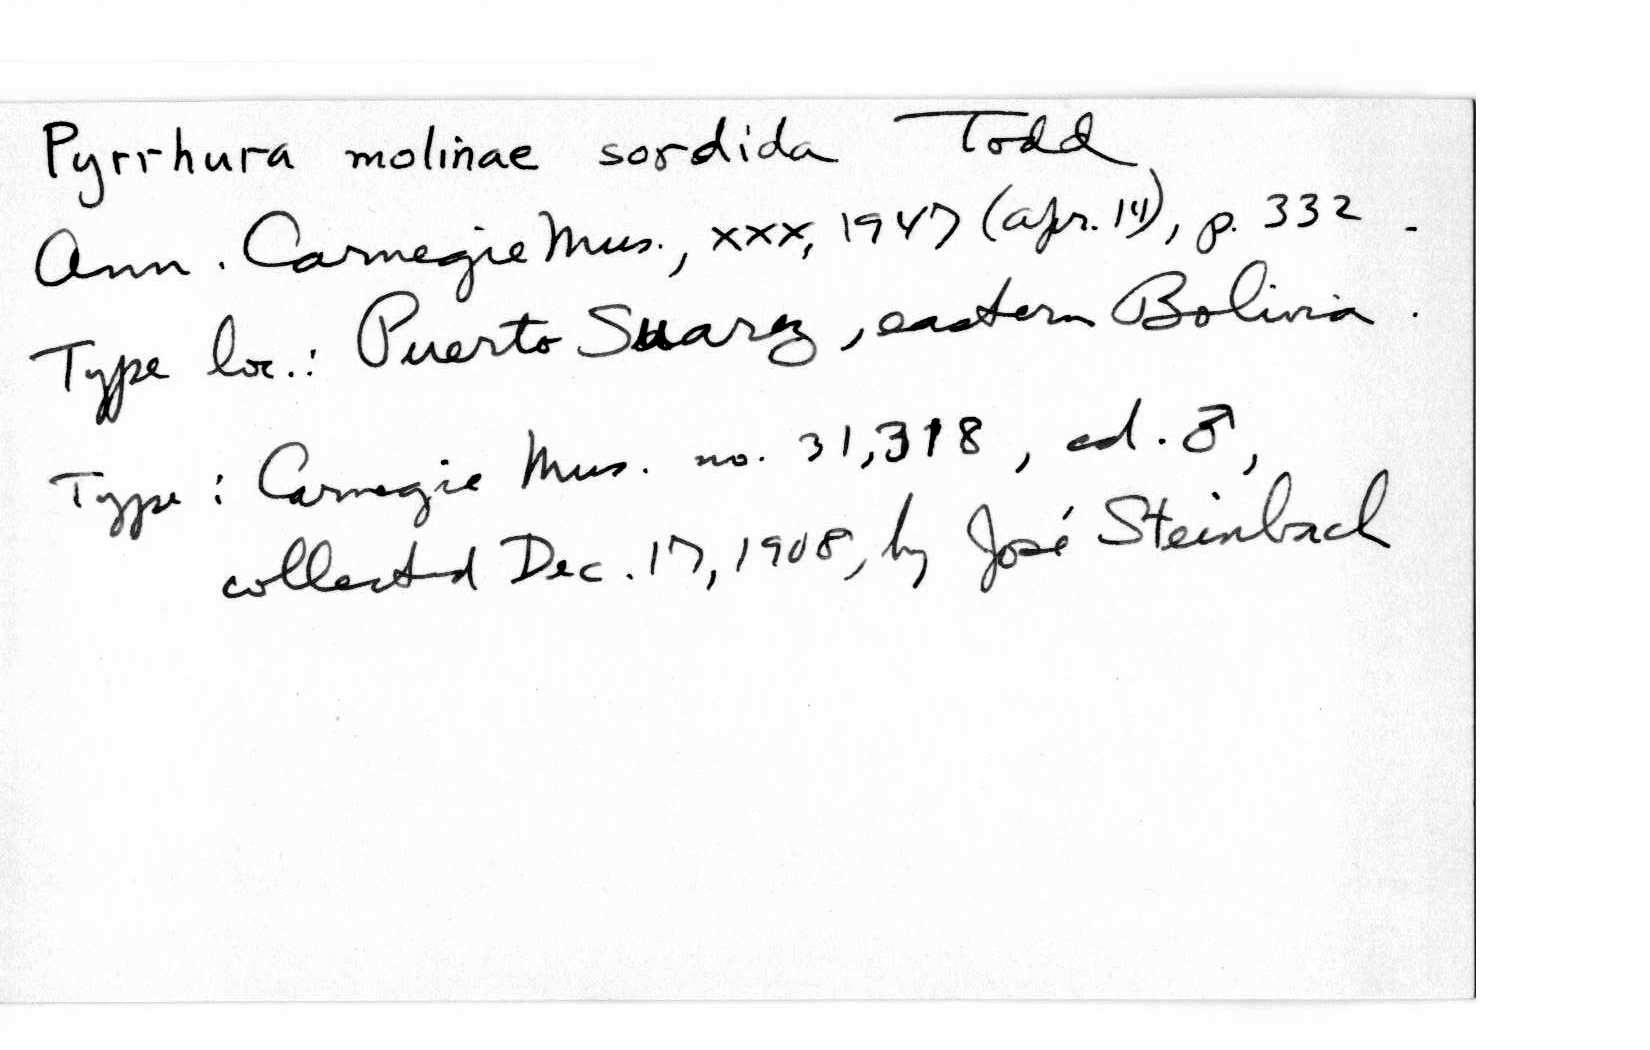 Pyrrhura molinae sordida Todd
Ann. Carnegie Mus., xxx, 1947 (Apr. 14), p. 332.
Type loc.: Puerto Suarez, eastern Bolivia.
Type: Carnegie Mus. no. 31,318, ad. ♂,
collected Dec. 17, 1908, by José Steinbach